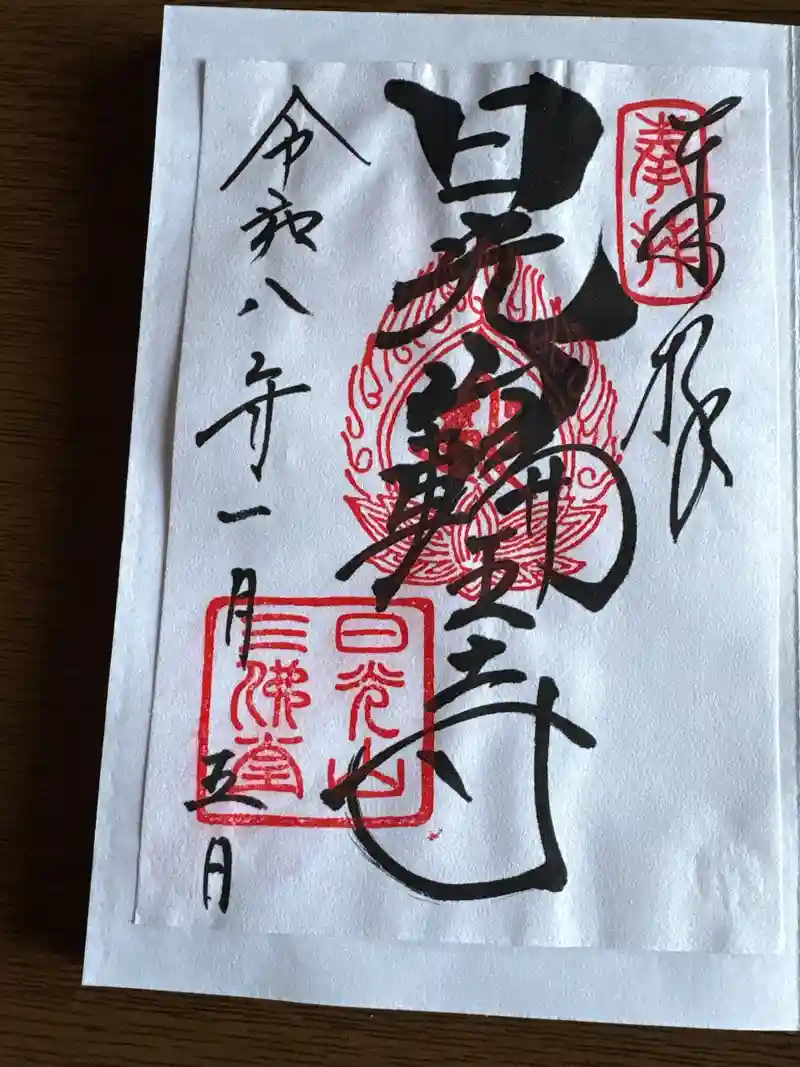 奉拝
日光輪王寺
令和八年一月五日
日光山
三佛堂